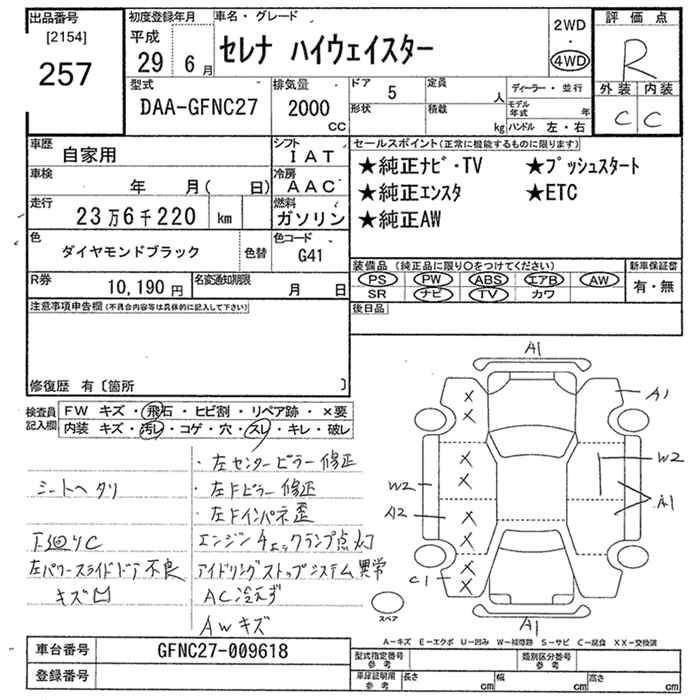 出品番号
[2154]
257
初度登録年月
平成
29 6月
車名・グレード
セレナ ハイウェイスター
2WD
・
4WD
評価点
R
外装 内装
C C
型式
DAA-GFNC27
排気量
2000
CC
ドア 5
形状
定員 人
積載 kg
ディーラー・並行
モデル年式 年
ハンドル 左・右
車歴 自家用
シフト IAT
車検 年 月( 日)
冷房 AAC
走行 23万6千220 km
燃料 ガソリン
色 ダイヤモンドブラック
色替
色コード G41
R券 10,190円
名変通知期限 月 日
セールスポイント(正常に機能するものに限ります)
★純正ナビ・TV ★プッシュスタート
★純正エンスタ ★ETC
★純正AW
装備品 (純正品に限り〇をつけてください)
PS PW ABS エアB AW
SR ナビ TV カワ
新車保証書
有・無
後日品
注意事項申告欄(不具合内容等は具体的に記入して下さい)
修復歴 有〔箇所 〕
検査員記入欄
FW キズ・飛石・ヒビ割・リペア跡・×要
内装 キズ・汚レ・コゲ・穴・スレ・キレ・破レ
シートヘタリ
下廻りC
左パワースライドドア不良
キズ凹
・左センターピラー修正
・左Fピラー修正
・左Fインパネ歪
エンジンチェックランプ点灯
アイドリングストップシステム異常
AC冷えず
AWキズ
A1
A1
W2
A1
W2
A2
C1
A1
X
X
X
X
X
X
X
X
スペア
A-キズ E-エクボ U-凹み W-補修跡 S-サビ C-腐食 XX-交換済
車台番号 GFNC27-009618
登録番号
型式指定番号 参考
類別区分番号 参考
車庫証明用 参考
長さ cm
幅 cm
高さ cm